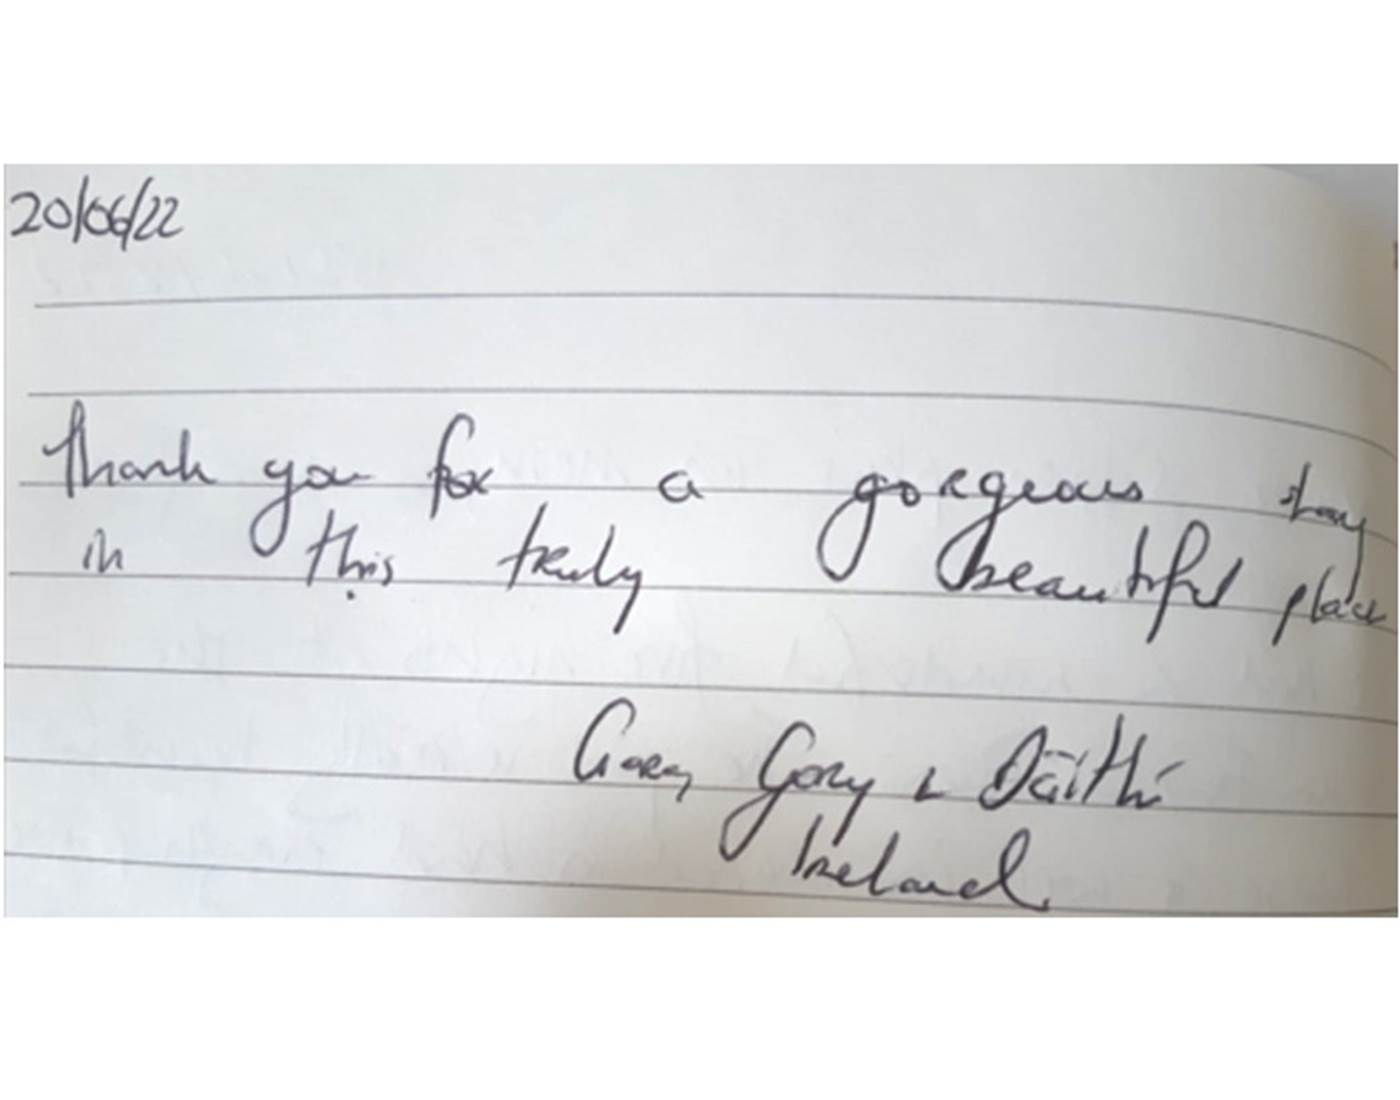 20/06/22
Thank you for a gorgeous stay
in this truly beautiful place
Gary & Dáithí
Ireland